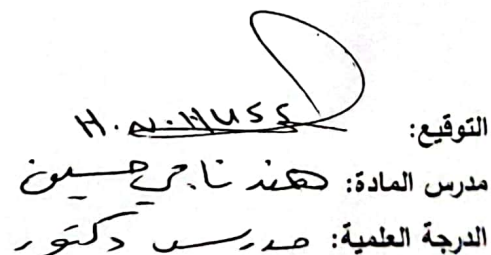 التوقيع: H.N.HUSS
مدرس المادة: هند ناجي حسين
الدرجة العلمية: مدرس دكتور